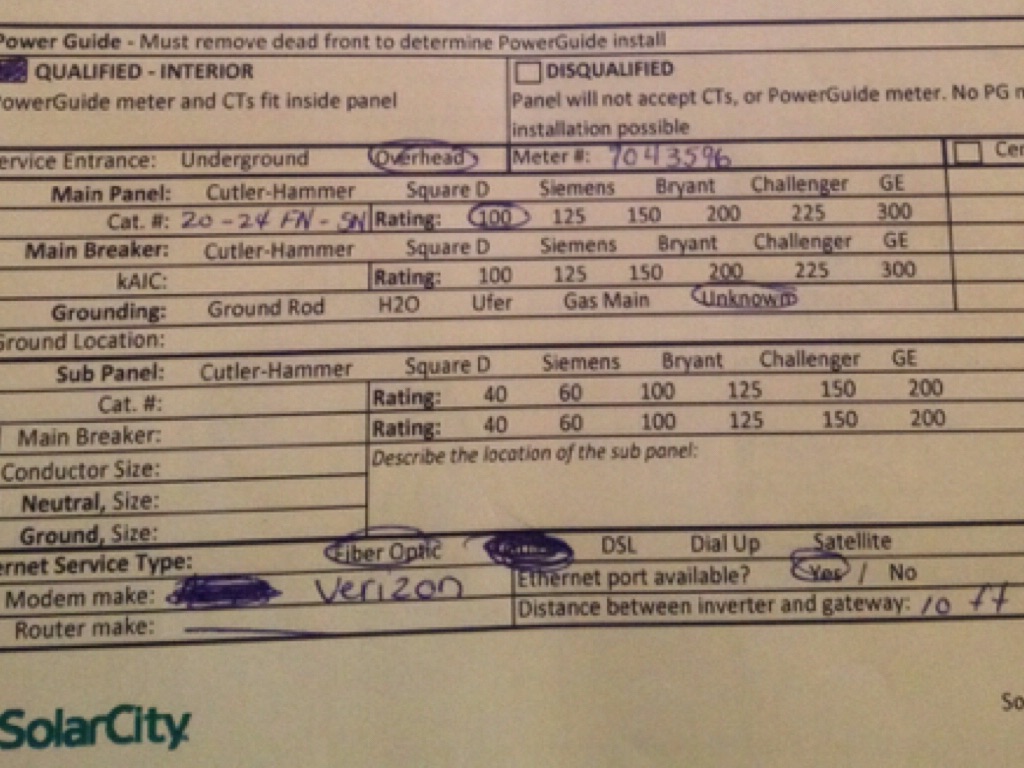 Power Guide - Must remove dead front to determine PowerGuide install
QUALIFIED - INTERIOR
PowerGuide meter and CTs fit inside panel
DISQUALIFIED
Panel will not accept CTs, or PowerGuide meter. No PG
installation possible
ervice Entrance: Underground Overhead Meter #: 7043596 Cer
Main Panel: Cutler-Hammer Square D Siemens Bryant Challenger GE
Cat. #: 20-24 FN-SN Rating: 100 125 150 200 225 300
Main Breaker: Cutler-Hammer Square D Siemens Bryant Challenger GE
kAIC: Rating: 100 125 150 200 225 300
Grounding: Ground Rod H2O Ufer Gas Main Unknown
Ground Location:
Sub Panel: Cutler-Hammer Square D Siemens Bryant Challenger GE
Cat. #: Rating: 40 60 100 125 150 200
Main Breaker: Rating: 40 60 100 125 150 200
Conductor Size: Describe the location of the sub panel:
Neutral, Size:
Ground, Size:
ernet Service Type: Fiber Optic DSL Dial Up Satellite
Modem make: Verizon Ethernet port available? Yes / No
Router make: Distance between inverter and gateway: 10 ft
So
SolarCity